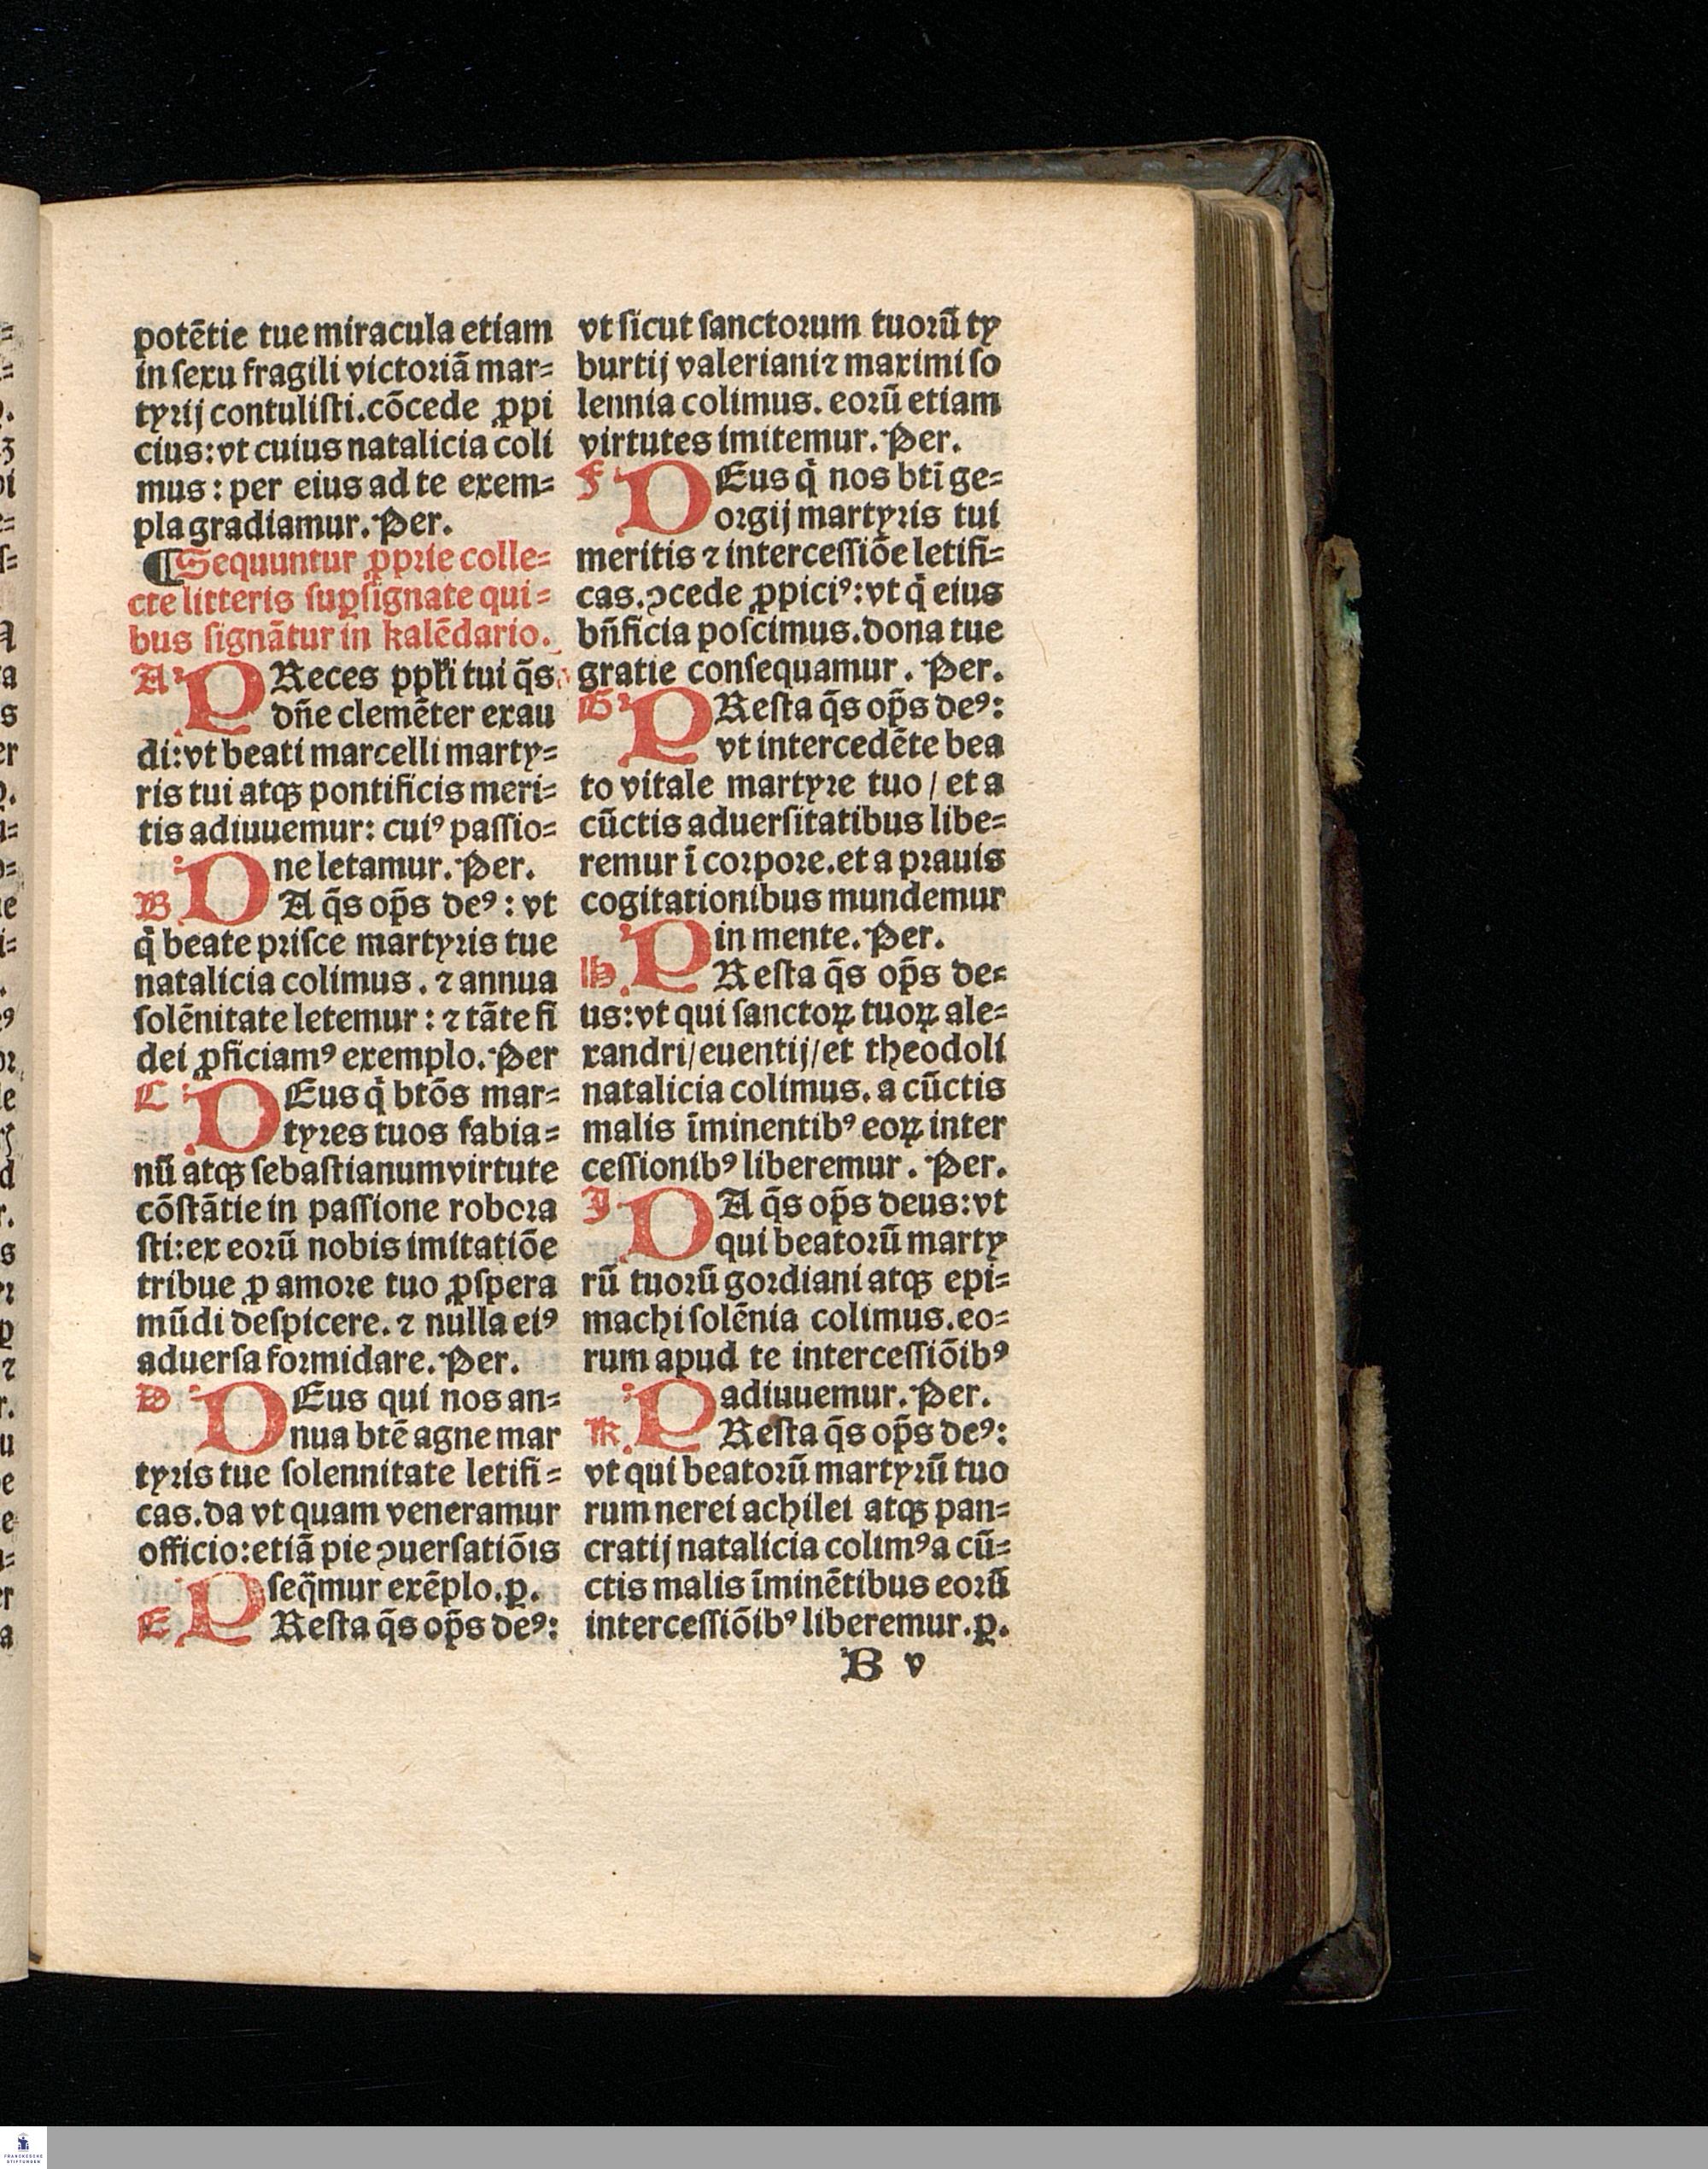 potētie tue miracula etiam
in sexu fragili victoriā mar=
tyrij contulisti.cōcede ꝓpi
cius:vt cuius natalicia coli
mus: per eius ad te exem=
pla gradiamur. Per.
¶ Sequuntur ꝓprie colle=
cte litteris suꝑsignate qui=
bus signātur in kalēdario.
A PReces ppli tui q̄s
dn̄e clemēter exau
di:vt beati marcelli marty=
ris tui atqꝫ pontificis meri=
tis adiuuemur: cuiꝰ passio=
ne letamur. Per.
B DA q̄s op̄s deꝰ: vt
q̇ beate prisce martyris tue
natalicia colimus. ⁊ annua
solēnitate letemur: ⁊ tāte fi
dei ꝓficiamꝰ exemplo. Per
C DEus q̇ btōs mar=
tyres tuos fabia=
nū atqꝫ sebastianum virtute
cōstātie in passione robora
sti:ex eorū nobis imitatiōe
tribue ꝓ amore tuo ꝓspera
mūdi despicere. ⁊ nulla eiꝰ
aduersa formidare. Per.
D DEus qui nos an=
nua btē agne mar
tyris tue solennitate letifi=
cas.da vt quam veneramur
officio:etiā pie ↄuersatiōis
seq̄mur exēplo.ꝑ.
E PResta q̄s op̄s deꝰ:
vt sicut sanctorum tuorū ty
burtij valeriani⁊ maximi so
lennia colimus. eorū etiam
virtutes imitemur. Per.
F DEus q̇ nos bti̅ ge=
orgij martyris tui
meritis ⁊ intercessiōe letifi=
cas.ↄcede ꝓpiciꝰ:vt q̇ eius
bn̄ficia poscimus.dona tue
gratie consequamur. Per.
G PResta q̄s op̄s deꝰ:
vt intercedēte bea
to vitale martyre tuo / et a
cūctis aduersitatibus libe=
remur ī corpore.et a prauis
cogitationibus mundemur
in mente. Per.
H PResta q̄s op̄s de=
us:vt qui sanctoꝝ tuoꝝ ale=
xandri/euentij/et theodoli
natalicia colimus. a cūctis
malis īminentibꝰ eoꝝ inter
cessionibꝰ liberemur. Per.
I DA q̄s op̄s deus:vt
qui beatorū marty
rū tuorū gordiani atqꝫ epi=
machi solēnia colimus.eo=
rum apud te intercessiōibꝰ
adiuuemur. Per.
K PResta q̄s op̄s deꝰ:
vt qui beatorū martyrū tuo
rum nerei achilei atqꝫ pan=
cratij natalicia colimꝰ a cū=
ctis malis īminētibus eorū
intercessiōibꝰ liberemur.ꝑ.
B v
FRANCKESCHE
STIFTUNGEN